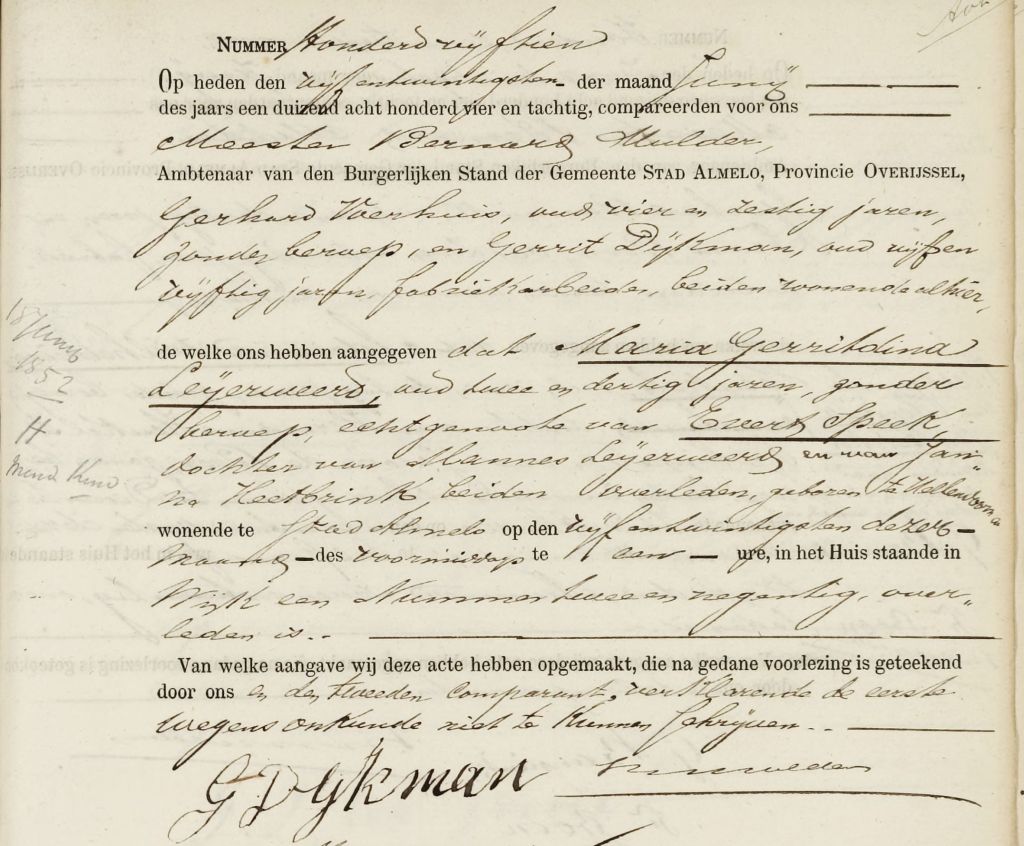 NUMMER Honderd vijftien
Op heden den vijfentwintigsten der maand Junij
des jaars een duizend acht honderd vier en tachtig, compareerden voor ons
Meester Bernard Mulder,
Ambtenaar van den Burgerlijken Stand der Gemeente STAD ALMELO, Provincie OVERIJSSEL,
Gerhard Voerhuis, oud vier en zestig jaren,
zonder beroep, en Gerrit Dijkman, oud vijf en
vijftig jaren, fabriekarbeider, beiden wonende alhier,
de welke ons hebben aangegeven dat Maria Gerritdina
Leijerweerd, oud twee en dertig jaren, zonder
beroep, echtgenoote van Evert Speek,
dochter van Mannes Leijerweerd en van Jan-
na Heetbrink, beiden overleden, geboren te Hellendoorn en
wonende te Stad Almelo op den vijfentwintigsten dezer
maand des voormiddags te een ure, in het Huis staande in
Wijk een Nummer twee en negentig, over-
leden is.
Van welke aangave wij deze acte hebben opgemaakt, die na gedane voorlezing is geteekend
door ons en den tweeden comparant, verklarende de eerste
wegens onkunde niet te kunnen schrijven.
G Dijkman
18 Junij
1852
H